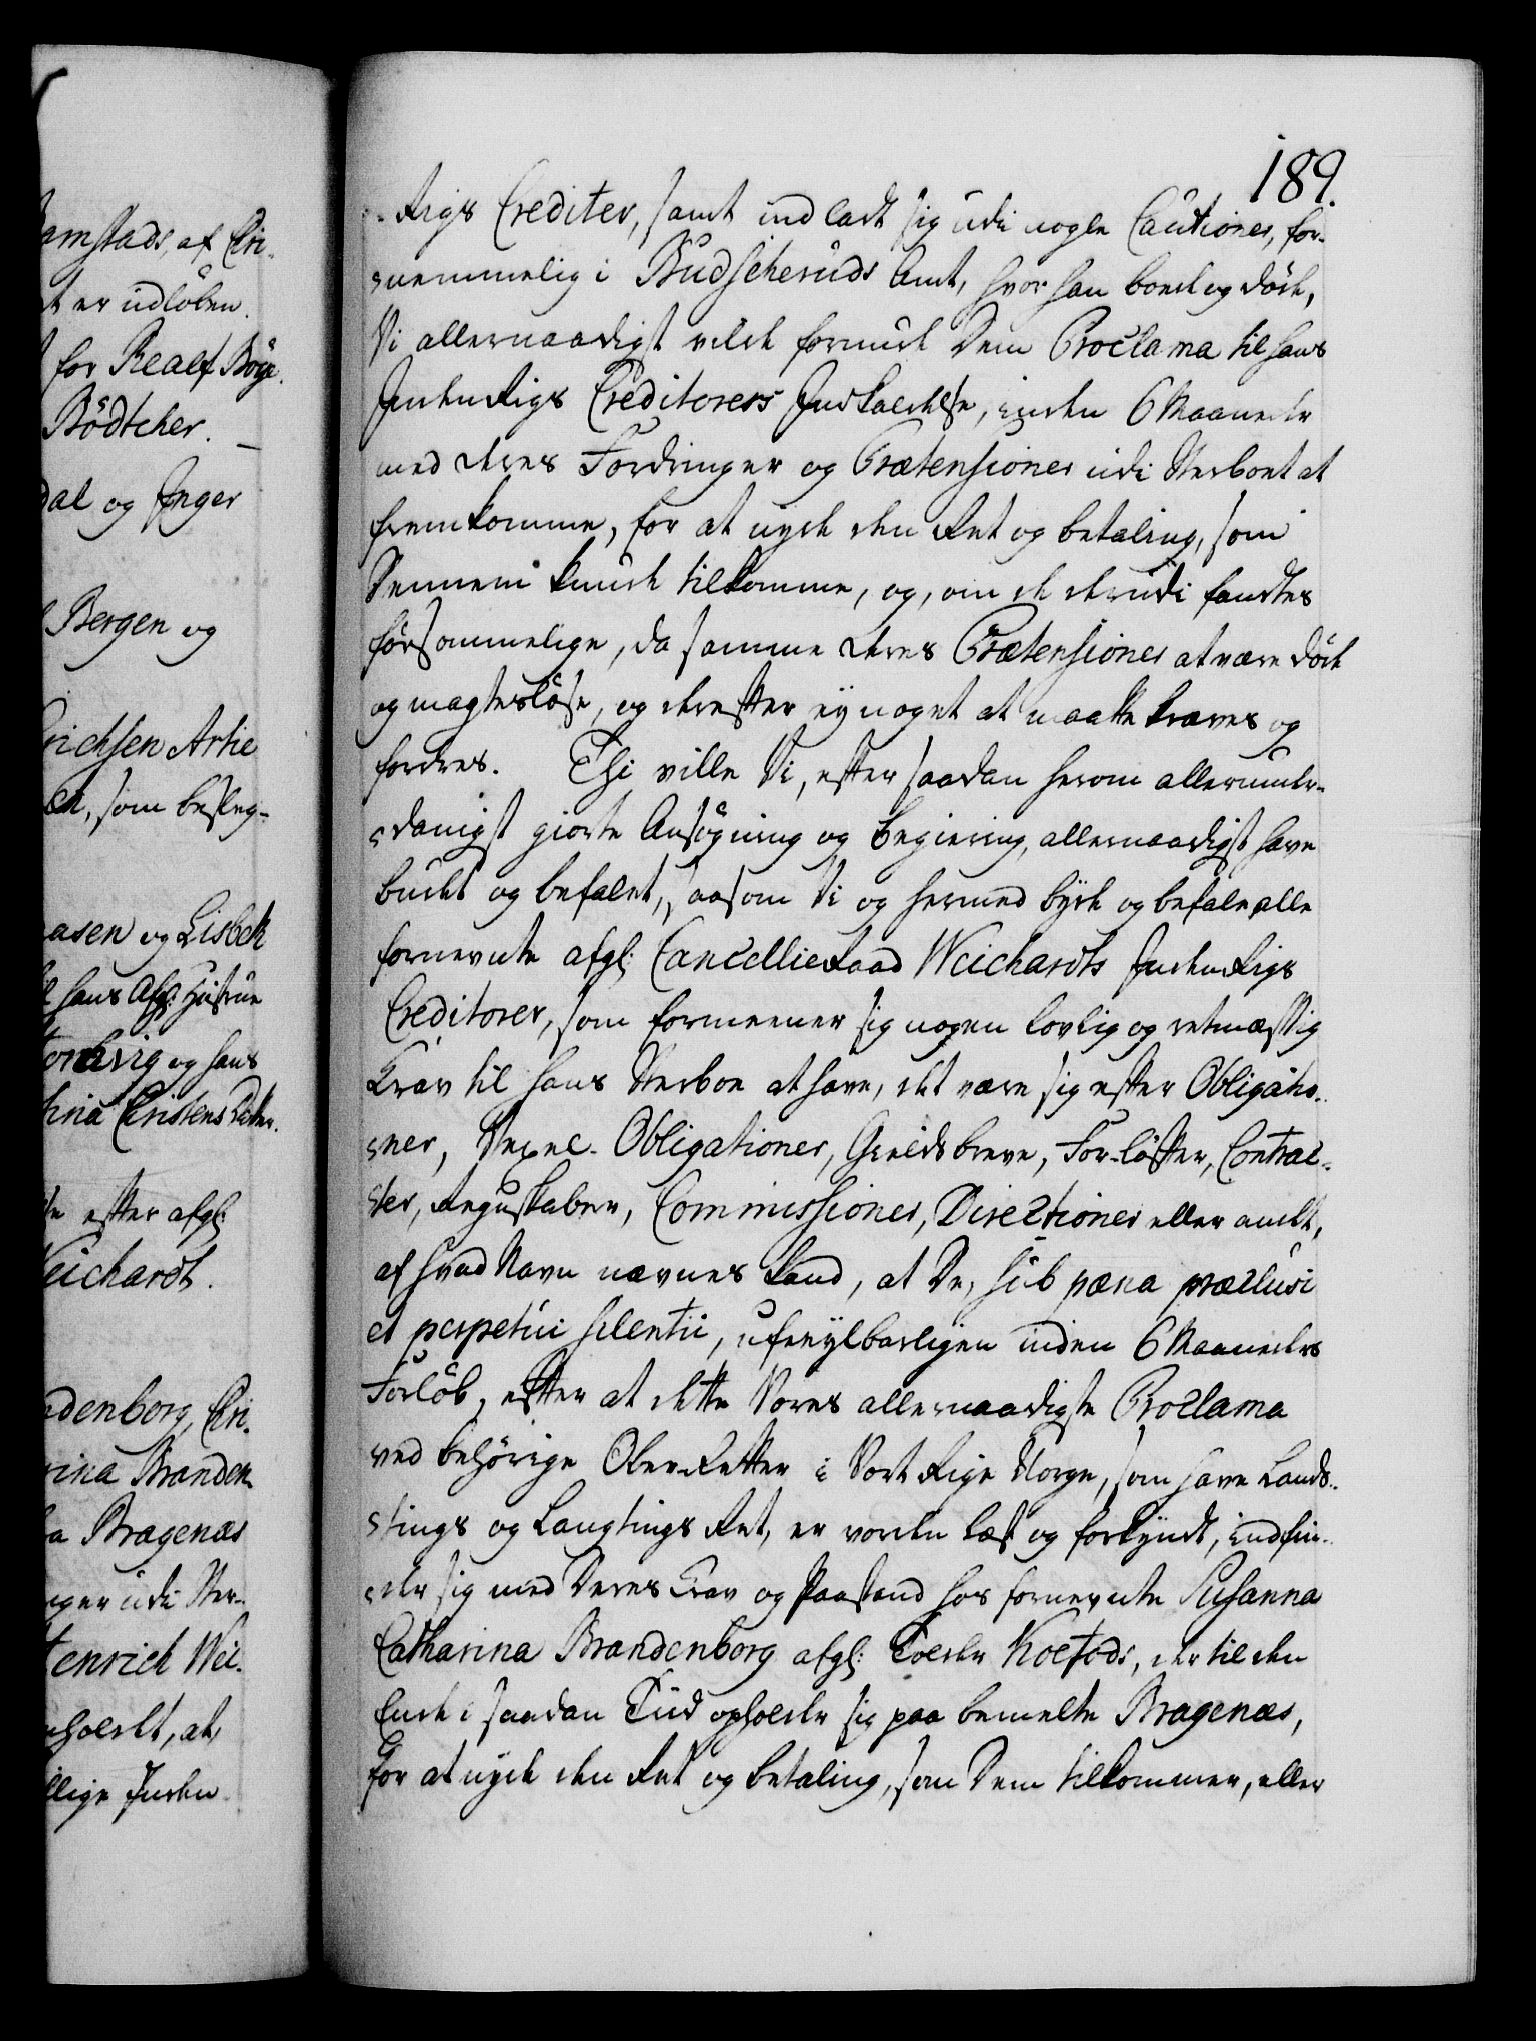 amstads, af Chri-
t er udløben.
for Realf Böye.
Bödtcher. –
dal og Inger
Bergen og
richsen Artie
som besleg-
asen og Lisbeth
hans Afgl: Hustrue
og hans
Christens Datter.
efter afgl:
Weichardt.
ndenborg, Chri-
rina Branden-
Bragenæs
nger udi Ster-
Henrich Wei-
nholdt, at,
llige Inden-
189.
-Rigs Crediter, samt indladt sig udi nogle Cautioner, for-
-nemmelig i Budscheruds Amt, hvor han boede og døde,
Vi allernaadigst vilde forunde Dem Proclama til hans
IndenRigs Creditorers Indkaldelse, inden 6 Maaneder
med deres Fordringer og Prætensioner udi Sterboet at
fremkomme, for at nyde den Ret og betaling, som
Dennem kunde tilkomme, og, om de derudi fandtes
forsømmelige, da samme deres Prætensioner at være døde
og magtesløse, og derefter ey noget at maatte kræves og
fordres. Thi ville Vi, efter saadan herom allerunder-
-danigst giorte Ansøgning og begiering, allernaadigst have
budet og befalet, saasom Vi og hermed byde og befale alle
fornevnte afgl: CancellieRaad Weichardts IndenRigs
Creditorer, som formeener sig nogen lovlig og retmæssig
Krav til hans Sterboe at have, det være sig efter Obligatio-
-ner, Vexel-Obligationer, Gieldsbreve, For-løfter, Contrac-
-ter, Regnskaber, Commissioner, Directioner eller andet,
af hvad Navn nævnes kand, at De, sub pæna præclusi
et perpetui silentii, ufeylbarligen inden 6 Maaneders
Forløb, efter at dette Vores allernaadigste Proclama
ved behørige OberRetter i Vort Rige Norge, som have Lands-
-tings og Laugtings Ret, er vorden læst og forkyndt, indfin-
-der sig med Deres Krav og Paastand hos fornevnte Susanna
Catharina Brandenborg afgl: Toldr Koefods, der til den
Ende i saadan Tiid opholder sig paa bemelte Bragenæs,
for at nyde den Ret og betaling, som Dem tilkommer, eller